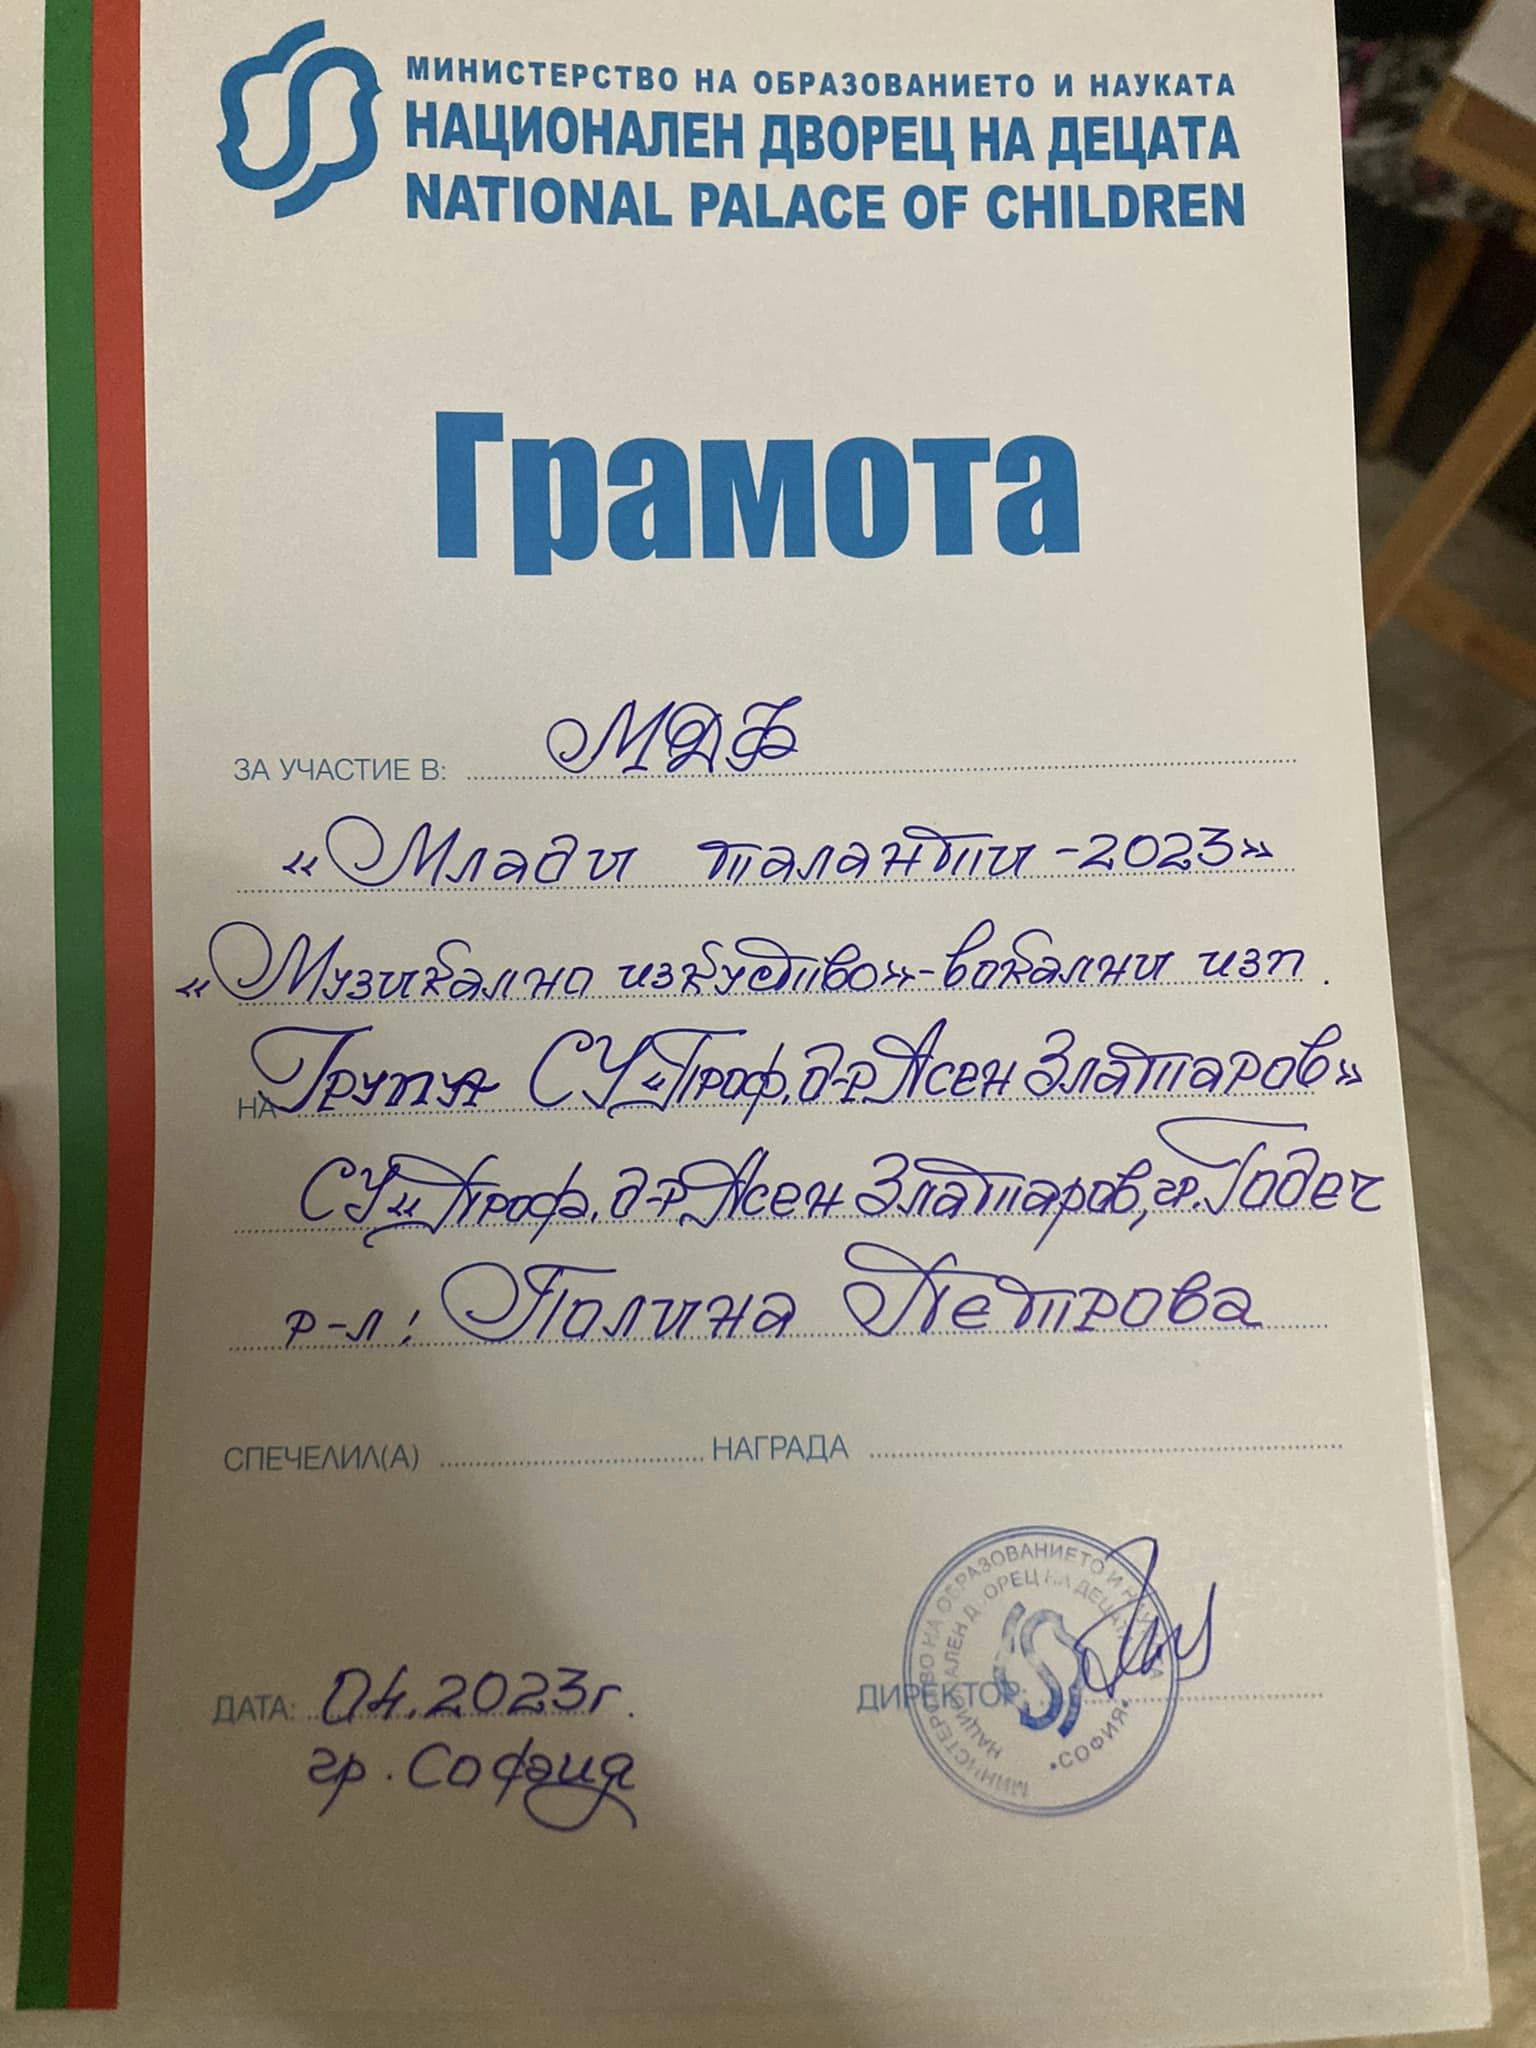 МИНИСТЕРСТВО НА ОБРАЗОВАНИЕТО И НАУКАТА
НАЦИОНАЛЕН ДВОРЕЦ НА ДЕЦАТА
NATIONAL PALACE OF CHILDREN
Грамота
ЗА УЧАСТИЕ В: МДФ
«Млади таланти-2023»
«Музикално изкуство»-вокални изп.
НА Група СУ«Проф. д-р Асен Златаров»
СУ«Проф. д-р Асен Златаров, гр. Годеч
р-л: Полина Петрова
СПЕЧЕЛИЛ(А) НАГРАДА
МИНИСТЕРСТВО НА ОБРАЗОВАНИЕТО И НАУКАТА
НАЦИОНАЛЕН ДВОРЕЦ НА ДЕЦАТА
•СОФИЯ•
ДАТА: 04.2023г. ДИРЕКТОР:
гр. София